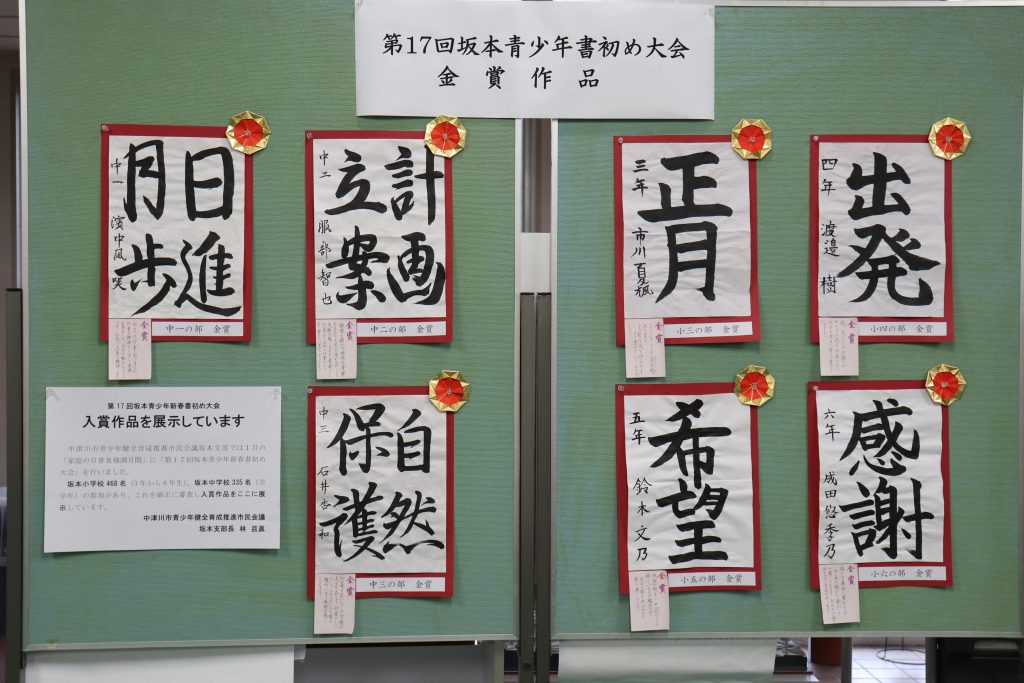 第17回坂本青少年書初め大会
金賞作品
日進
月歩
中一
中一の部 金賞
金賞
計画
立案
中二 服部智也
中二の部 金賞
金賞
正月
三年 市川夏楓
小三の部 金賞
金賞
出発
四年 渡邉樹
小四の部 金賞
金賞
第17回坂本青少年新春書初め大会
入賞作品を展示しています
中津川市青少年健全育成推進市民会議坂本支部では1月の
「家庭の日普及強調月間」に「第17回坂本青少年新春書初め
大会」を行いました。
坂本小学校468名（3年から6年生）、坂本中学校335名（全
学年）の参加があり、これを厳正に審査し入賞作品をここに展
示しています。
中津川市青少年健全育成推進市民会議
坂本支部長 林 昌眞
自然
保護
中三 石井杏和
中三の部 金賞
金賞
希望
五年 鈴木文乃
小五の部 金賞
金賞
感謝
六年 成田悠季乃
小六の部 金賞
金賞